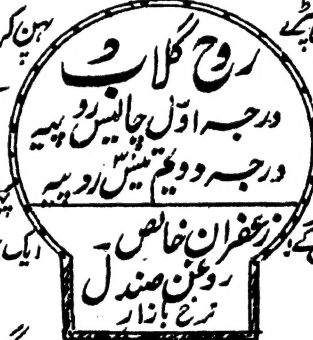 روح گلاب و
درجہ اوّل چالیس روپیہ
درجہ دوئم تیس روپیہ
زعفران خالص
روغن صندل
نرخ بازار
پہن کر
ایک